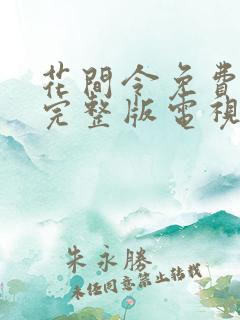 花間令免費
完整版電視
朱永勝
未經同意禁止轉載